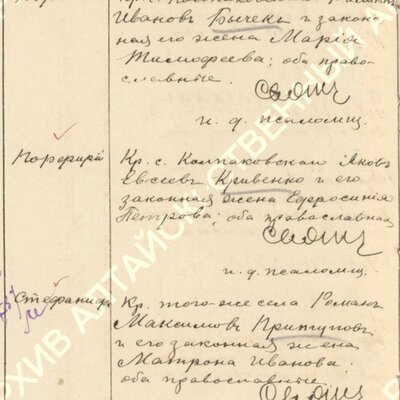 Ивановъ Бычекъ и закон-
ная его жена Марія
Тимофеева; оба право-
славные.
и. д. псаломщ.
Порфирій
Кр. с. Колпаковскаго Яковъ
Евсеевъ Кривенко и его
законная жена Евфросинія
Петрова; оба православная
и. д. псаломщ.
Стефанида
Кр. того-же села Романъ
Максимовъ Припутовъ
и его законная жена
Матрона Иванова;
оба православные.
АРХИВ АЛТАЙСК